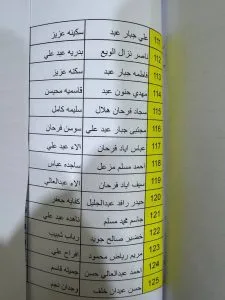 111 علي جبار عبد سكينه عزيز
112 ناصر نزال الويع بدريه عبد علي
113 فاطمه جبار عبد سكنه عزيز
114 مهدي حنون عبد قاسميه محيسن
115 سجاد فرحان هلال سليمه كامل
116 مجتبى جبار عبد علي سوسن فرحان
117 عباس اياد فرحان الاء عبد علي
118 احمد مسلم مزعل ساجده عباس
119 سيف اياد فرحان الاء عبدالعالي
120 حيدر رافد عبدالجليل كفايه جعفر
121 جاسم محمد مسلم ناهده عبد علي
122 خضير صالح جويد رباب شبيب
123 مريم رياض محمود افراح علي
124 احمد عبدالعالي حسن جميله قاسم
125 حسن عبدان خلف وجدان نجم